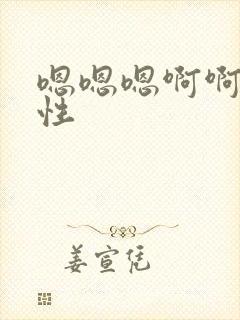 嗯嗯嗯啊啊
性
姜宣凭